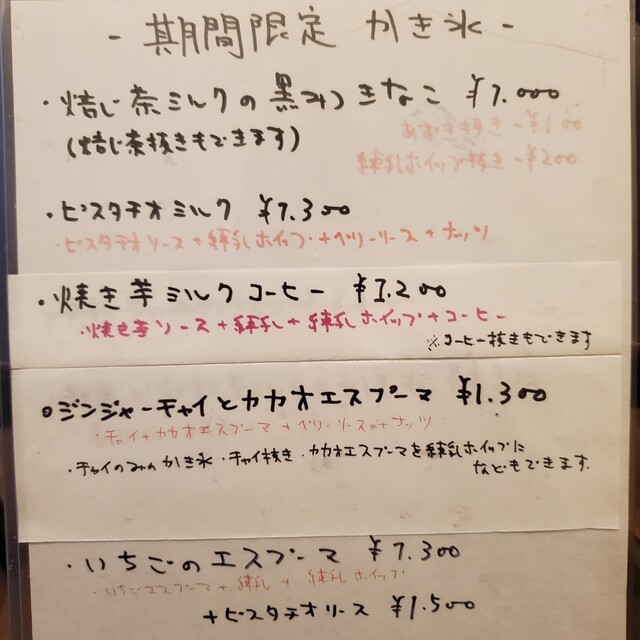 - 期間限定 かき氷 -
・焙じ茶ミルクの黒みつきなこ ¥1.000
(焙じ茶抜きもできます)
あずき抜き -¥100
練乳ホイップ抜き -¥200
・ピスタチオミルク ¥1.300
・ピスタチオソース+練乳ホイップ+ベリーソース+ナッツ
・焼き芋ミルクコーヒー ¥1.200
・焼き芋ソース+練乳+練乳ホイップ+コーヒー
※コーヒー抜きもできます
・ジンジャーチャイとカカオエスプーマ ¥1.300
・チャイ+カカオエスプーマ+ベリーソース+ナッツ
・チャイのみのかき氷・チャイ抜き・カカオエスプーマを練乳ホイップに
などもできます.
・いちごのエスプーマ ¥1.300
・いちごエスプーマ+練乳+練乳ホイップ
+ピスタチオソース ¥1.500